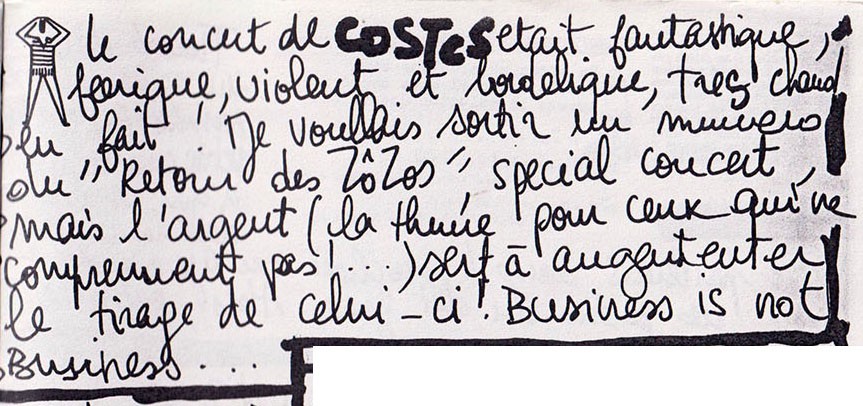 le concert de COSTES etait fantastique,
feerique, violent et bordelique, tres chaud
en fait ! Je voullais sortir un numero
du "Retour des ZôZos" special concert,
mais l'argent (la thune pour ceux qui ne
comprennent pas!...) sert à augententer
le tirage de celui-ci! Business is not
Business...